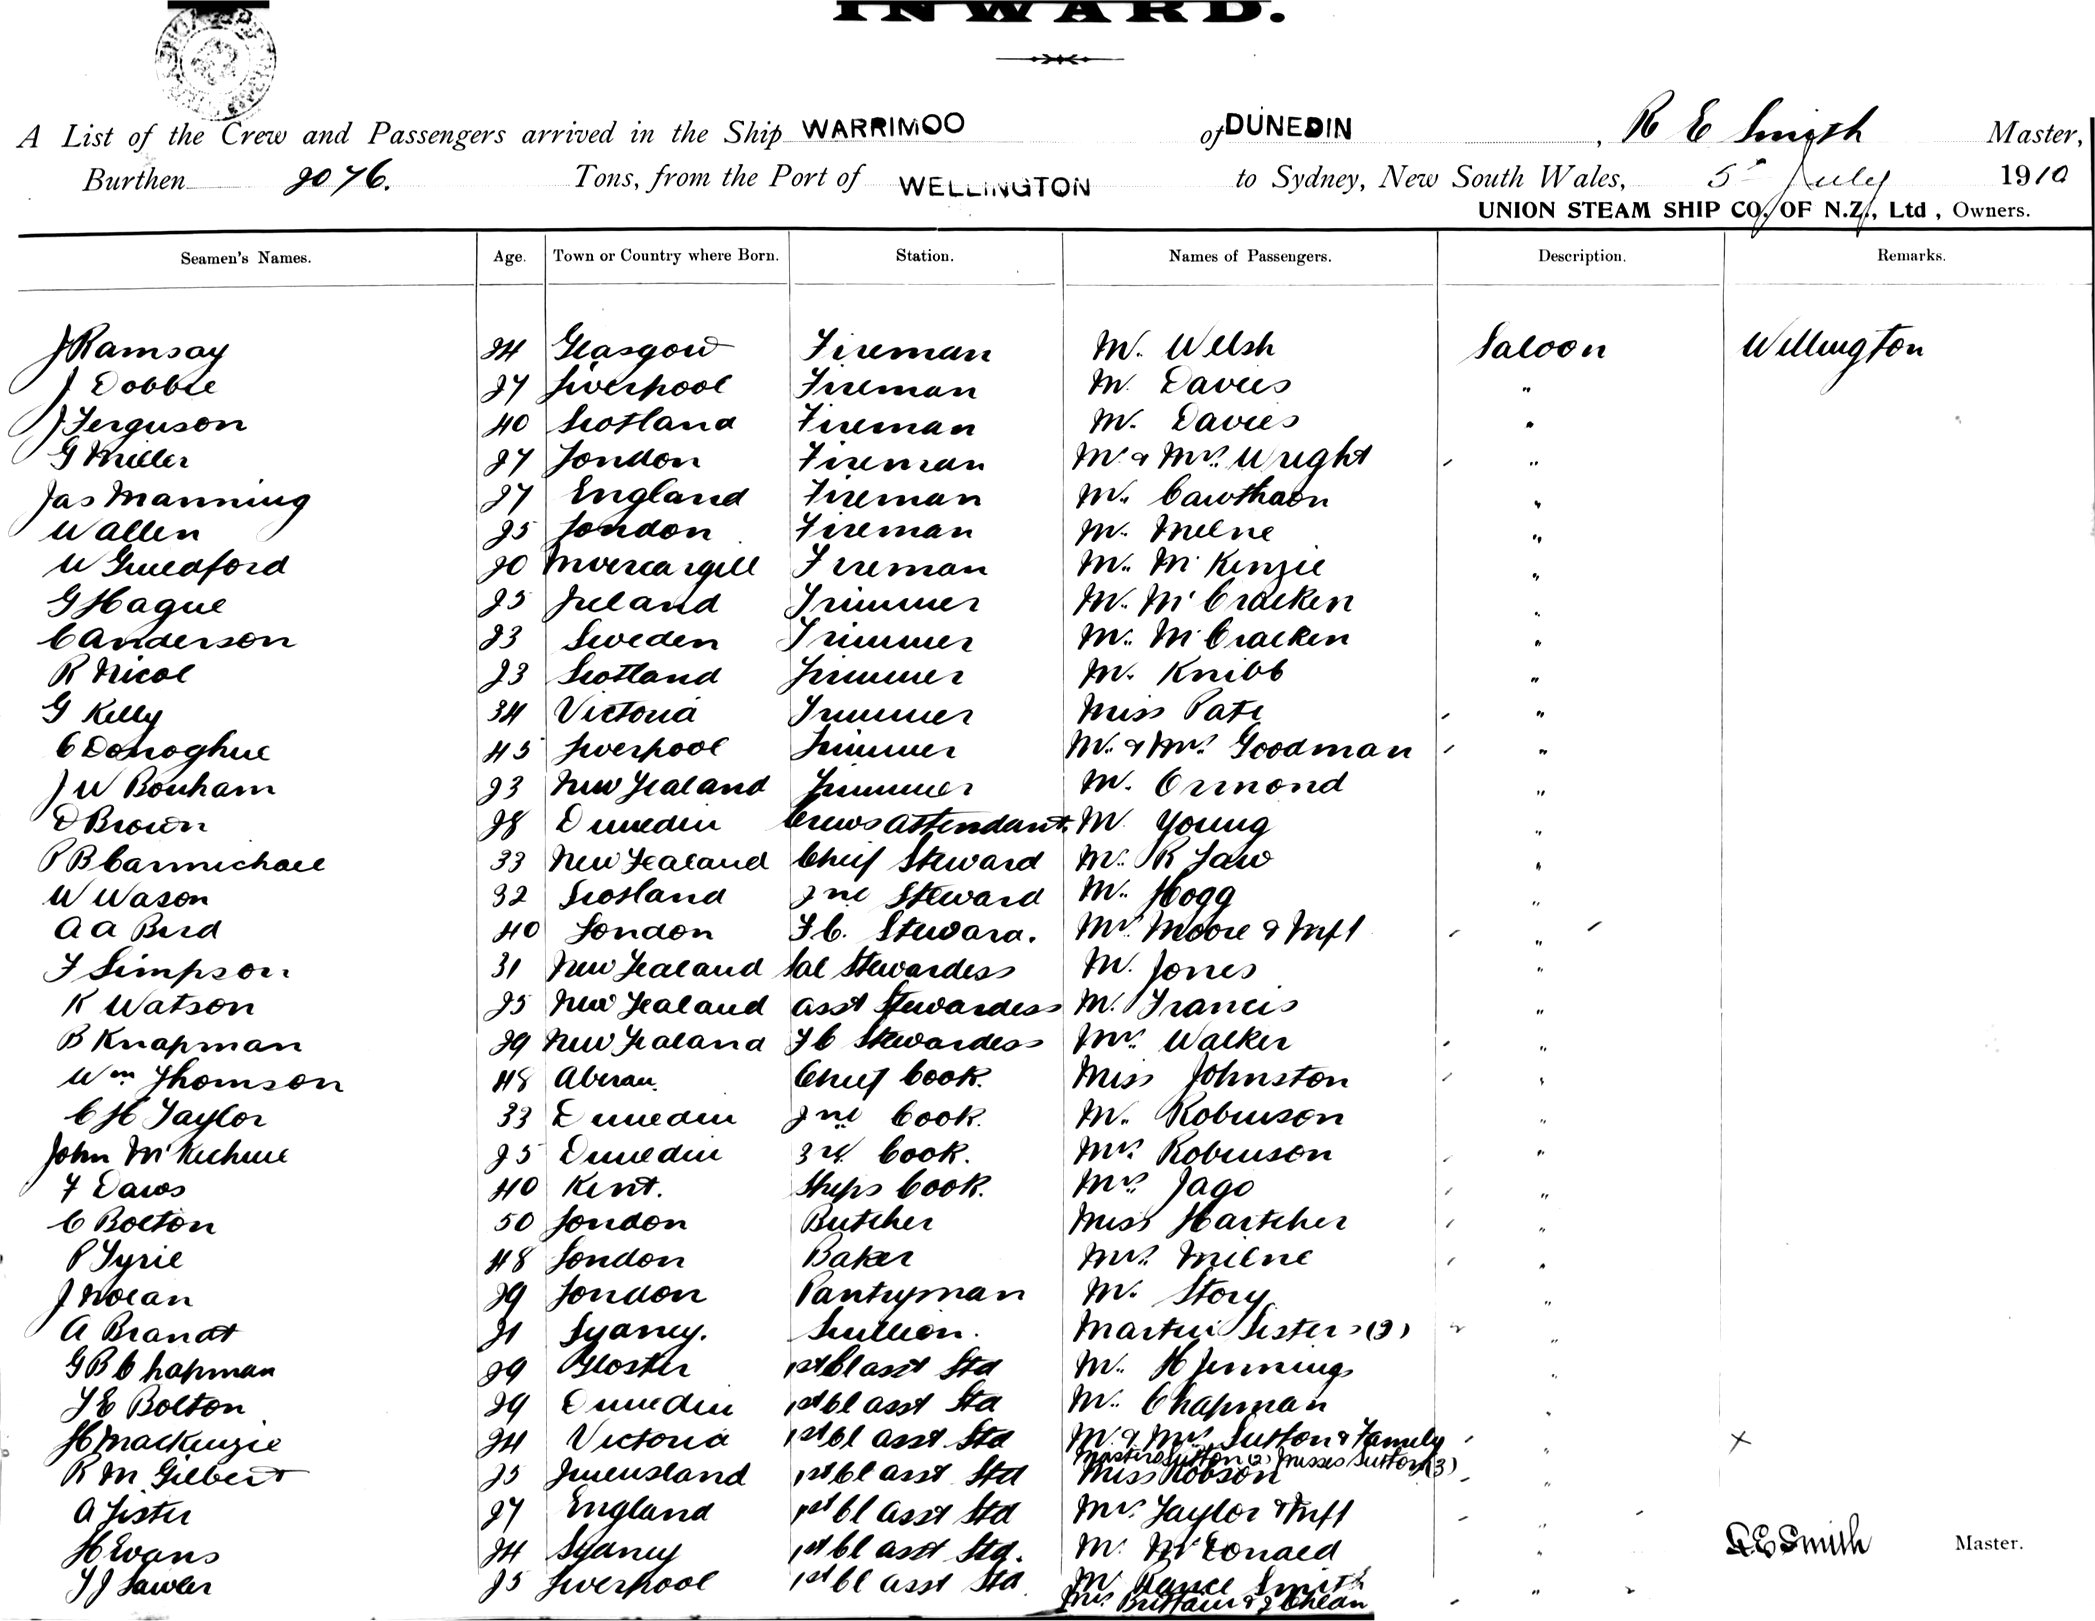 INWARD.
A List of the Crew and Passengers arrived in the Ship WARRIMOO of DUNEDIN, R E Smith Master,
Burthen 2076. Tons, from the Port of WELLINGTON to Sydney, New South Wales, 5 July 1910
UNION STEAM SHIP CO. OF N.Z., Ltd, Owners.
Seamen's Names. Age. Town or Country where Born. Station. Names of Passengers. Description. Remarks.
J Ramsay 24 Glasgow Fireman Mr. Welsh Saloon Wellington
J Dobbie 27 Liverpool Fireman Mr Davies "
J Ferguson 40 Scotland Fireman Mr. Davies "
G Miller 27 London Fireman Mr & Mrs. Wright "
Jas Manning 27 England Fireman Mr. Cawthaon "
W Allen 25 London Fireman Mr. Milne "
W Guledford 20 Invercargill Fireman Mr. McKenzie "
G Hague 25 Ireland Trimmer Mr. McCracken "
C Anderson 23 Sweden Trimmer Mr. McCracken "
R Nicol 23 Scotland Trimmer Mr. Knibb "
G Kelly 34 Victoria Trimmer Miss Pate "
C Donoghue 45 Liverpool Trimmer Mr. & Mrs. Goodman "
J W Bonham 23 New Zealand Trimmer Mr. Ormond "
D Brown 28 Dunedin Crews Attendant Mr Young "
P B Carmichael 33 New Zealand Chief Steward Mr. R Law "
W Wason 32 Scotland 2nd Steward Mr. Hogg "
A A Bird 40 London F.C. Steward. Mrs Moore & Inft "
F Simpson 31 New Zealand Sal Stewardess Mr. Jones "
K Watson 25 New Zealand Asst Stewardess Mr. Francis "
B Knapman 29 New Zealand F C Stewardess Mrs. Walker "
Wm Thomson 48 Aberau. Chief Cook. Miss Johnston "
C H Taylor 33 Dunedin 2nd Cook. Mr. Robinson "
John McKechnie 25 Dunedin 3rd Cook. Mrs Robinson "
F Daws 40 Kent. Ships Cook. Mrs. Jago "
C Bolton 50 London Butcher Miss Hartcher "
P Tyrie 48 London Baker Mrs. Milne "
J Nolan 29 London Pantryman Mr. Story "
A Brandt 21 Sydney. Scullion. Martin Sisters (3) "
G B Chapman 29 Gloster 1st Cl asst Std Mr. H Jennings "
T E Bolton 29 Dunedin 1st Cl asst Std Mr. Chapman "
H Mackenzie 24 Victoria 1st Cl asst Std Mr. & Mrs. Sutton & Family " x
Masters Sutton (2) Misses Sutton (3)
R M Gilbert 25 Queensland 1st Cl asst Std Miss Robson
A Lister 27 England 1st Cl asst Std Mrs. Taylor & Inft "
H Evans 24 Sydney 1st Cl asst Std. Mr. McDonald " R E Smith Master.
T J Lawler 25 Liverpool 1st Cl asst Std Mr Rance Smith "
Mrs Brittain & 2 Chldn